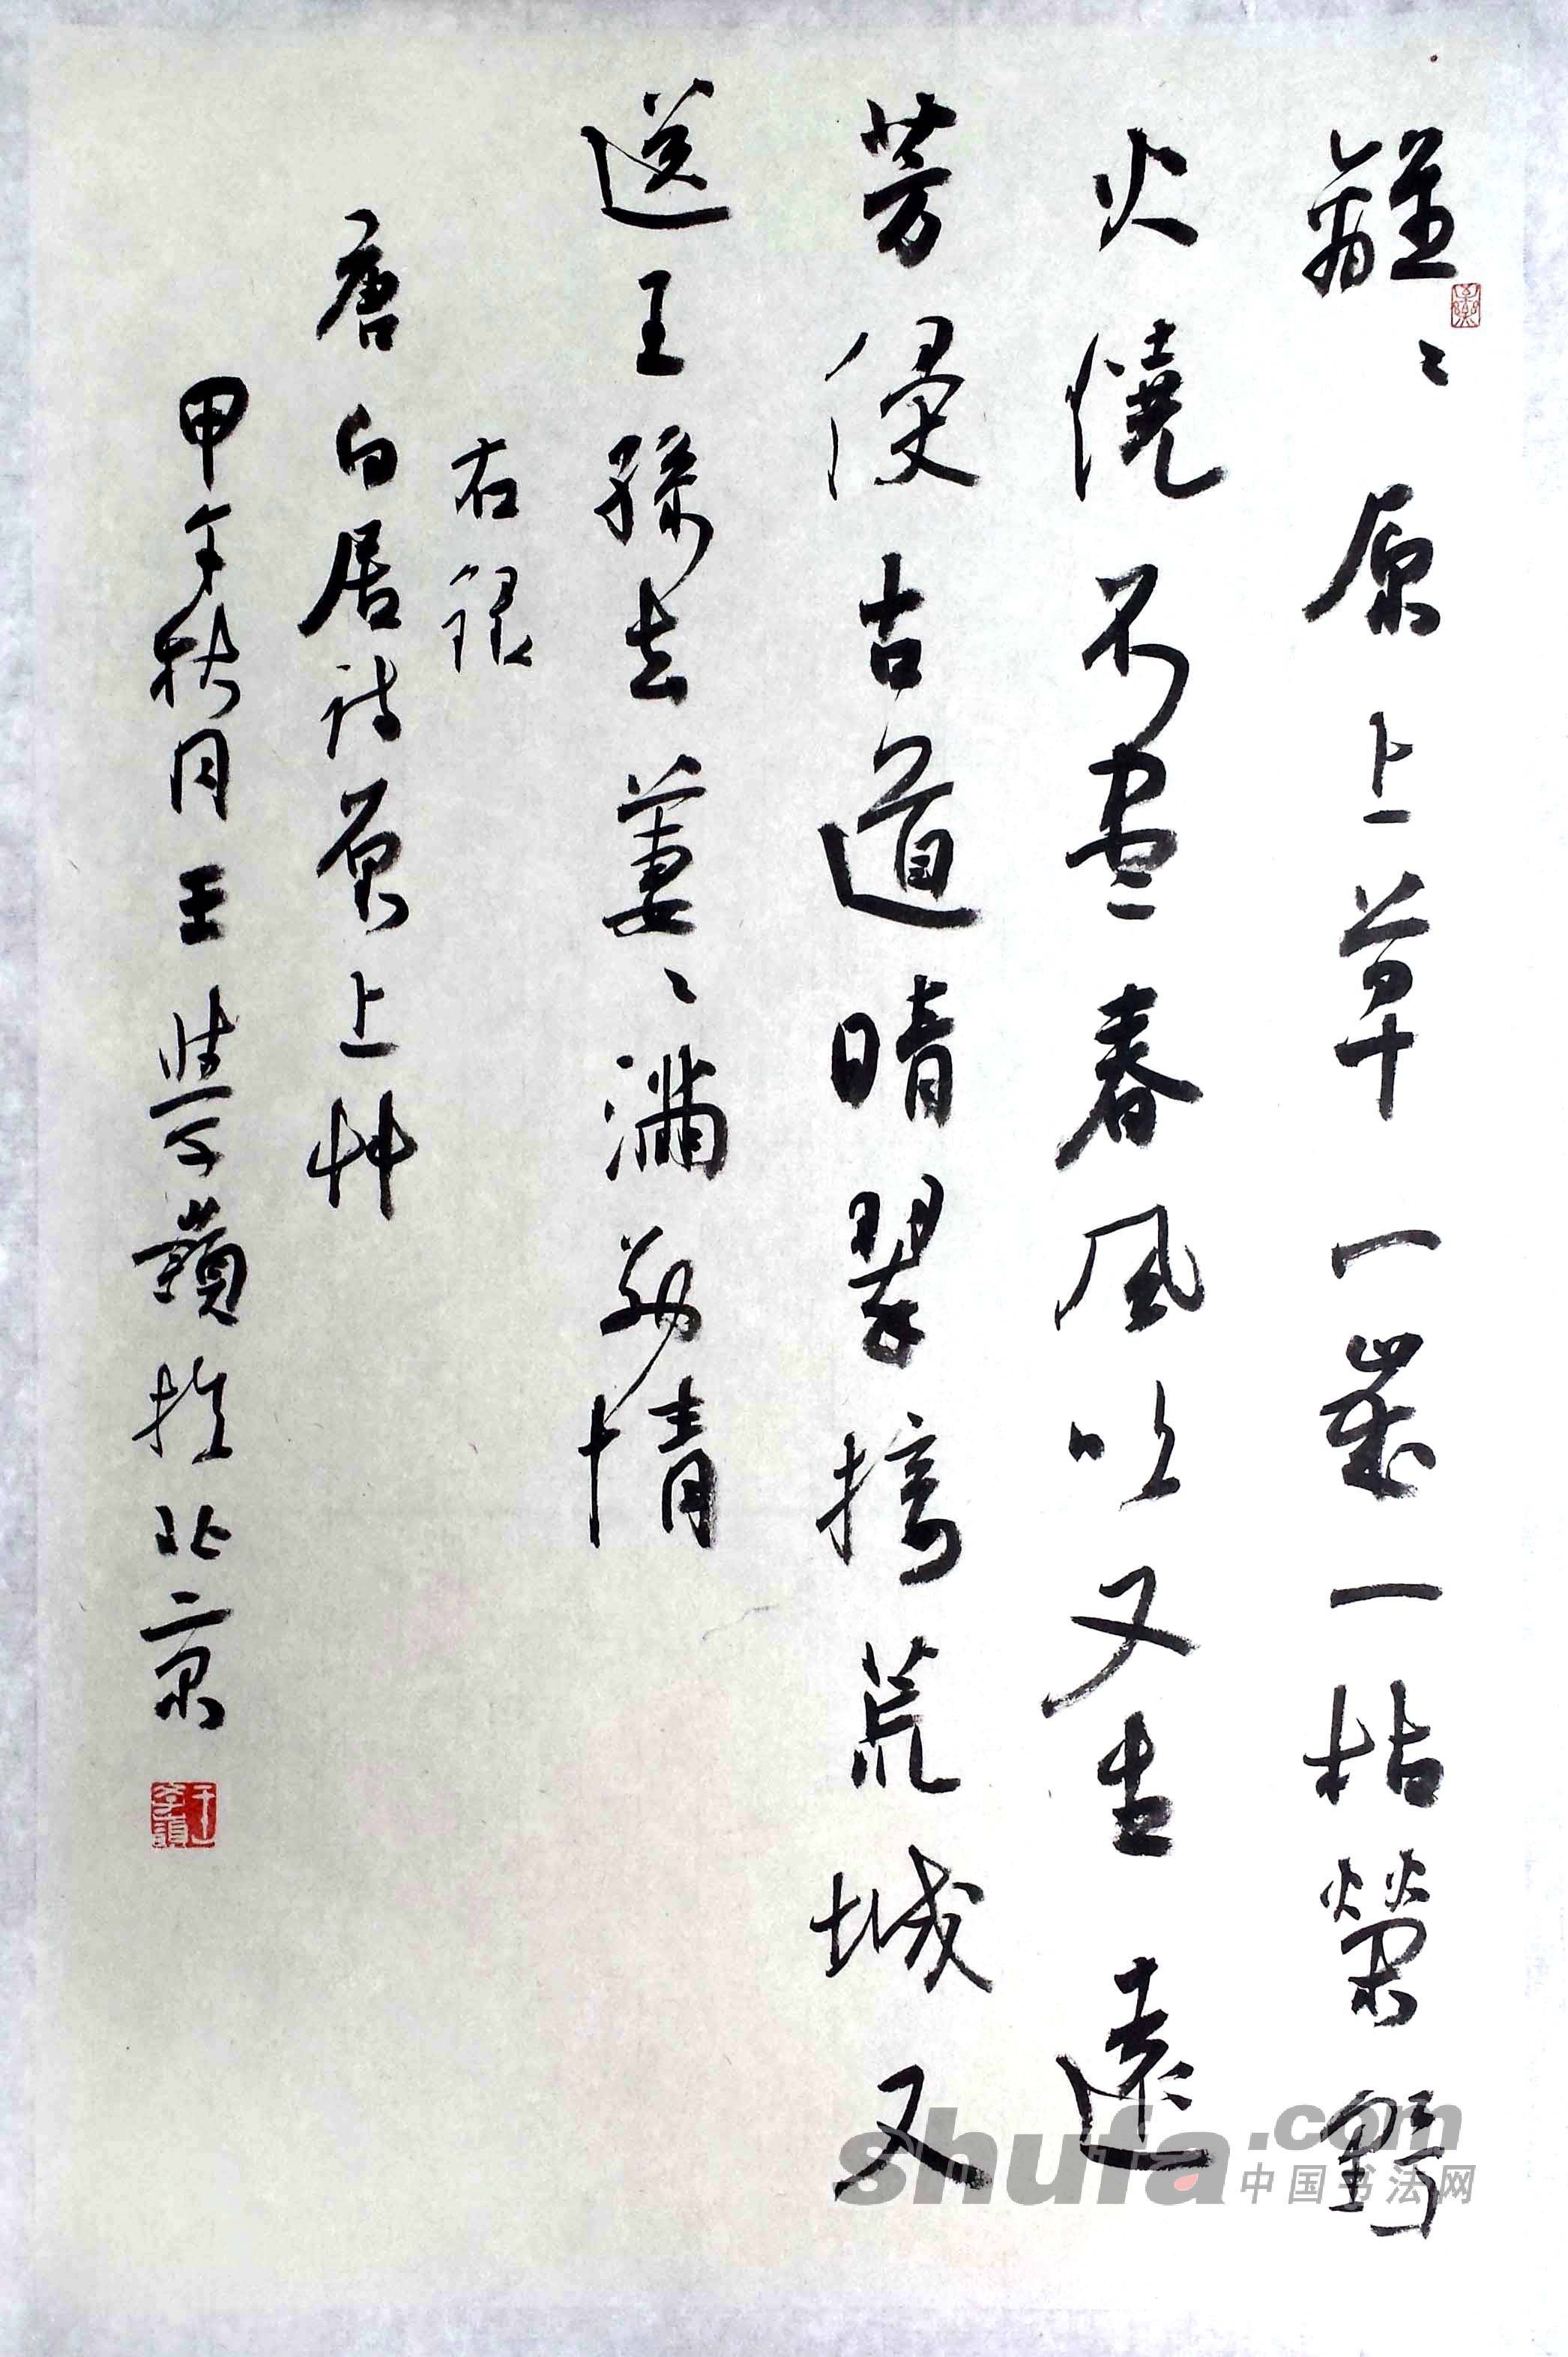 離〻原上草一歲一枯榮野
火燒不盡春風吹又生遠
芳侵古道晴翠接荒城又
送王孫去萋〻滿別情
右録
唐白居詩原上艸
甲午秋月王學嶺於北京
shufa.com
中国书法网